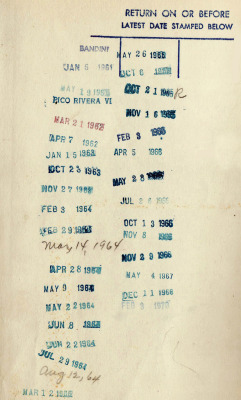 RETURN ON OR BEFORE
LATEST DATE STAMPED BELOW
BANDINI
JAN 5 1961
MAY 19 1962
PICO RIVERA VI
MAR 21 1962
APR 7 1962
JAN 15 1963
OCT 23 1963
NOV 27 1963
FEB 3 1964
FEB 29 1964
May 14, 1964
APR 28 1964
MAY 9 1964
MAY 22 1964
JUN 8 1964
JUN 22 1964
JUL 29 1964
Aug 12, 64
MAR 12
MAY 26 1965
OCT 6 1965
OCT 21 1965 R
NOV 16 1965
FEB 3 1966
APR 5 1966
MAY 28 1966
JUL 1966
OCT 13 1966
NOV 8 1966
NOV 29 1966
MAY 4 1967
DEC 11 1966
FEB 3